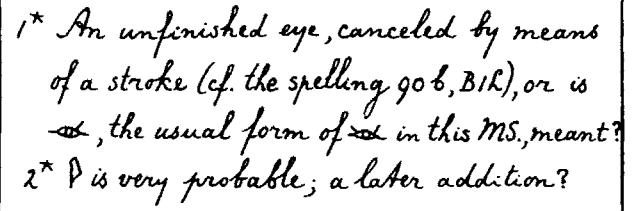 1* An unfinished eye, canceled by means
of a stroke (cf. the spelling 90 b, B1L), or is
, the usual form of in this MS., meant?
2* P is very probable; a later addition?